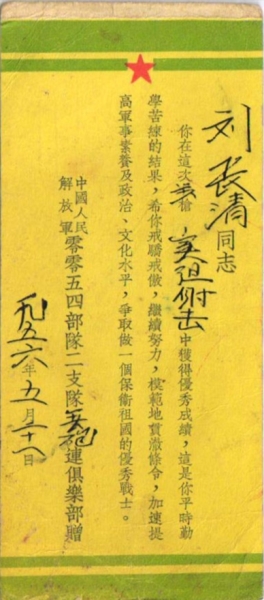 刘长清同志
你在這次步槍实弹射击中獲得優秀成績，這是你平時勤
學苦練的結果，希你戒驕戒傲，繼續努力，模範地貫澈條令，加速提
高軍事素養及政治、文化水平，爭取做一個保衛祖國的優秀戰士。
中國人民
解放軍零零五四部隊二支隊連俱樂部贈
五六年五月日